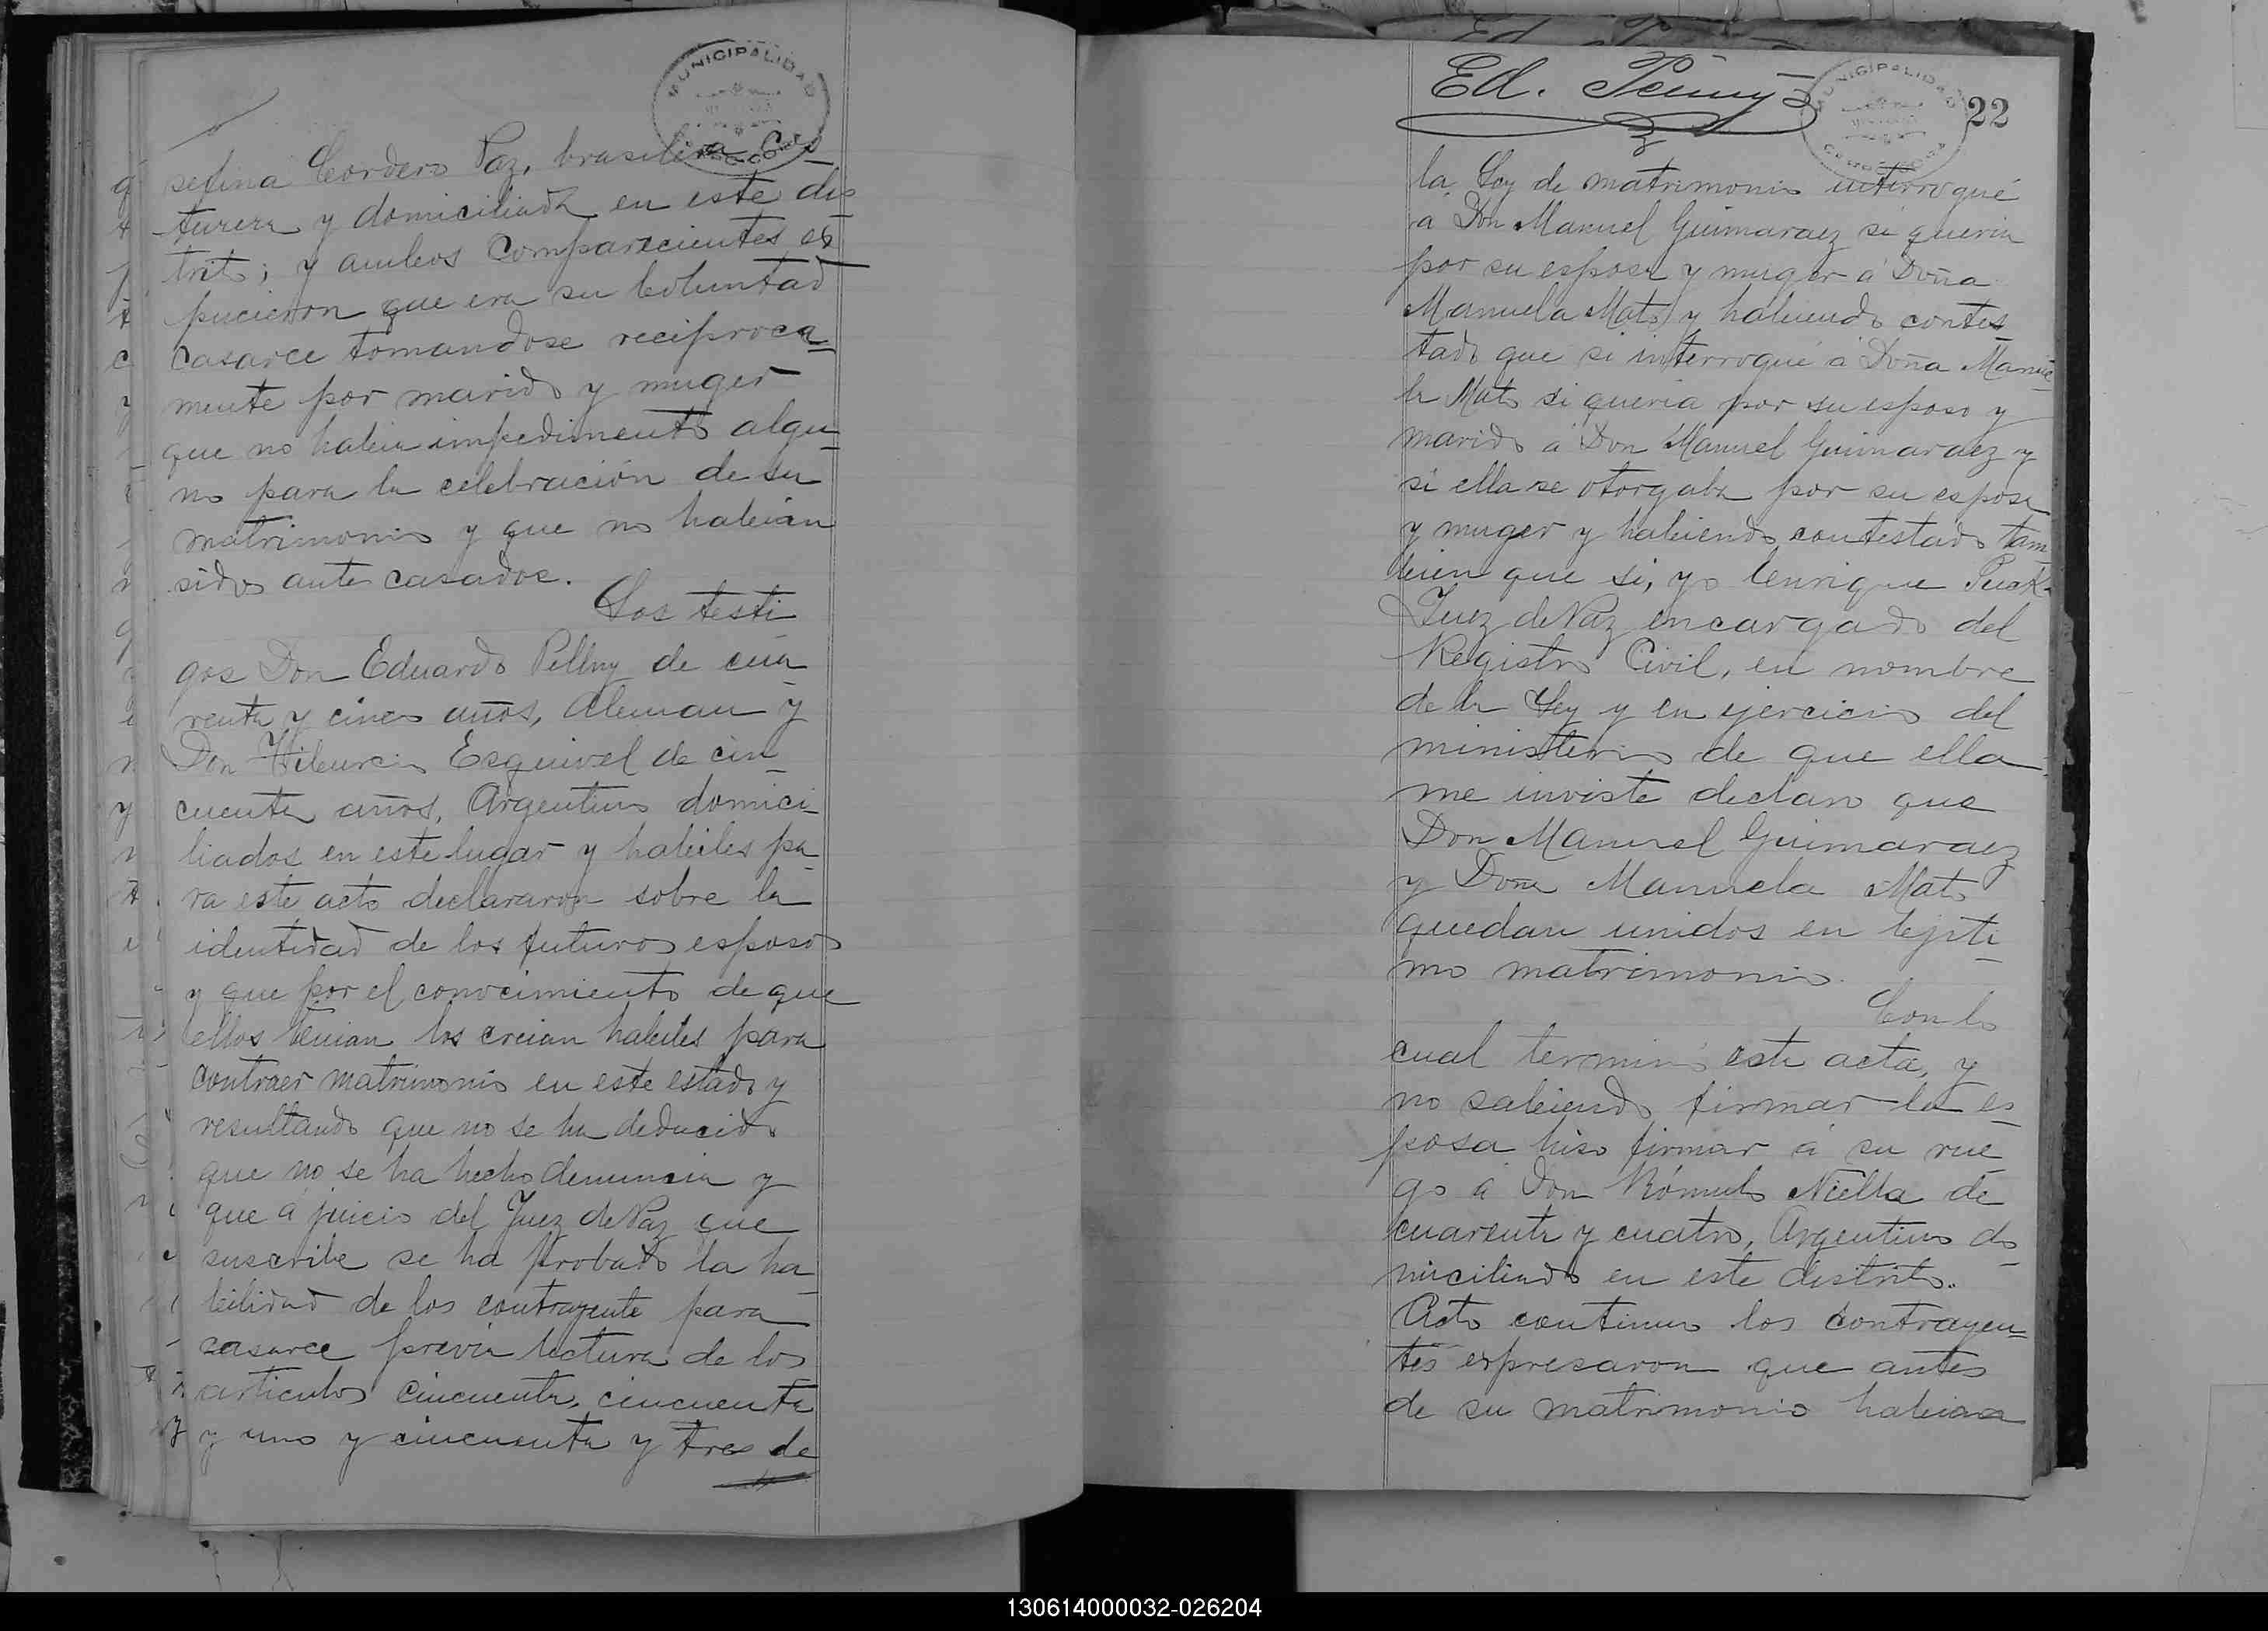 MUNICIPALIDAD
sefina Cordero Paz, brasilera Cos_
turera y domiciliada en este dis
trito; y ambos comparecientes es
pucieron que era su boluntad
casarce tomandose reciproca_
mente por marido y muger
que no habia impedimento algu_
no para la celebración de su
matrimonio y que no habian
sidos antes casados.
Los testi_
gos Don Eduardo Pellny de cua_
renta y cinco años, Aleman y
Don Tiburcio Esquivel de cin_
cuenta años, Argentino domici_
liados en este lugar y habiles pa_
ra este acto declararon sobre la
identidad de los futuros esposos
y que por el conocimiento de que
ellos tenian los creian habiles para
contraer matrimonio en este estado y
resultando que no se ha deducido
que no se ha hecho denuncia y
que á juicio del Juez de Paz que
suscribe se ha probado la ha_
bilidad de los contrayente para
casarce previa lectura de los
articulos cincuenta, cincuenta
y uno y cincuenta y tres de
Ed. Penny
MUNICIPALIDAD
22
la Ley de matrimonio interrogué
á Don Manuel Guimaraez si queria
por su esposa y muger á Doña
Manuela Mato y habiendo contes
tado que si interrogué á Doña Manue_
la Mato si queria por su esposo y
marido á Don Manuel Guimaraez y
si ella se otorgaba por su esposa
y muger y habiendo contestado tam
bien que si, yo Enrique
Juez de Paz encargado del
Registro Civil, en nombre
de la Ley y en ejercicio del
ministerio de que ella
me inviste declaro que
Don Manuel Guimaraez
y Doña Manuela Mato
quedan unidos en lejiti_
mo matrimonio.
Con lo
cual terminó esta acta, y
no sabiendo firmar la es_
posa hiso firmar á su rue_
go á Don Rómulo Niella de
cuarenta y cuatro, Argentino do_
miciliado en este distrito.
Acto continuo los contrayen_
tes expresaron que antes
de su matrimonio habian
130614000032-026204